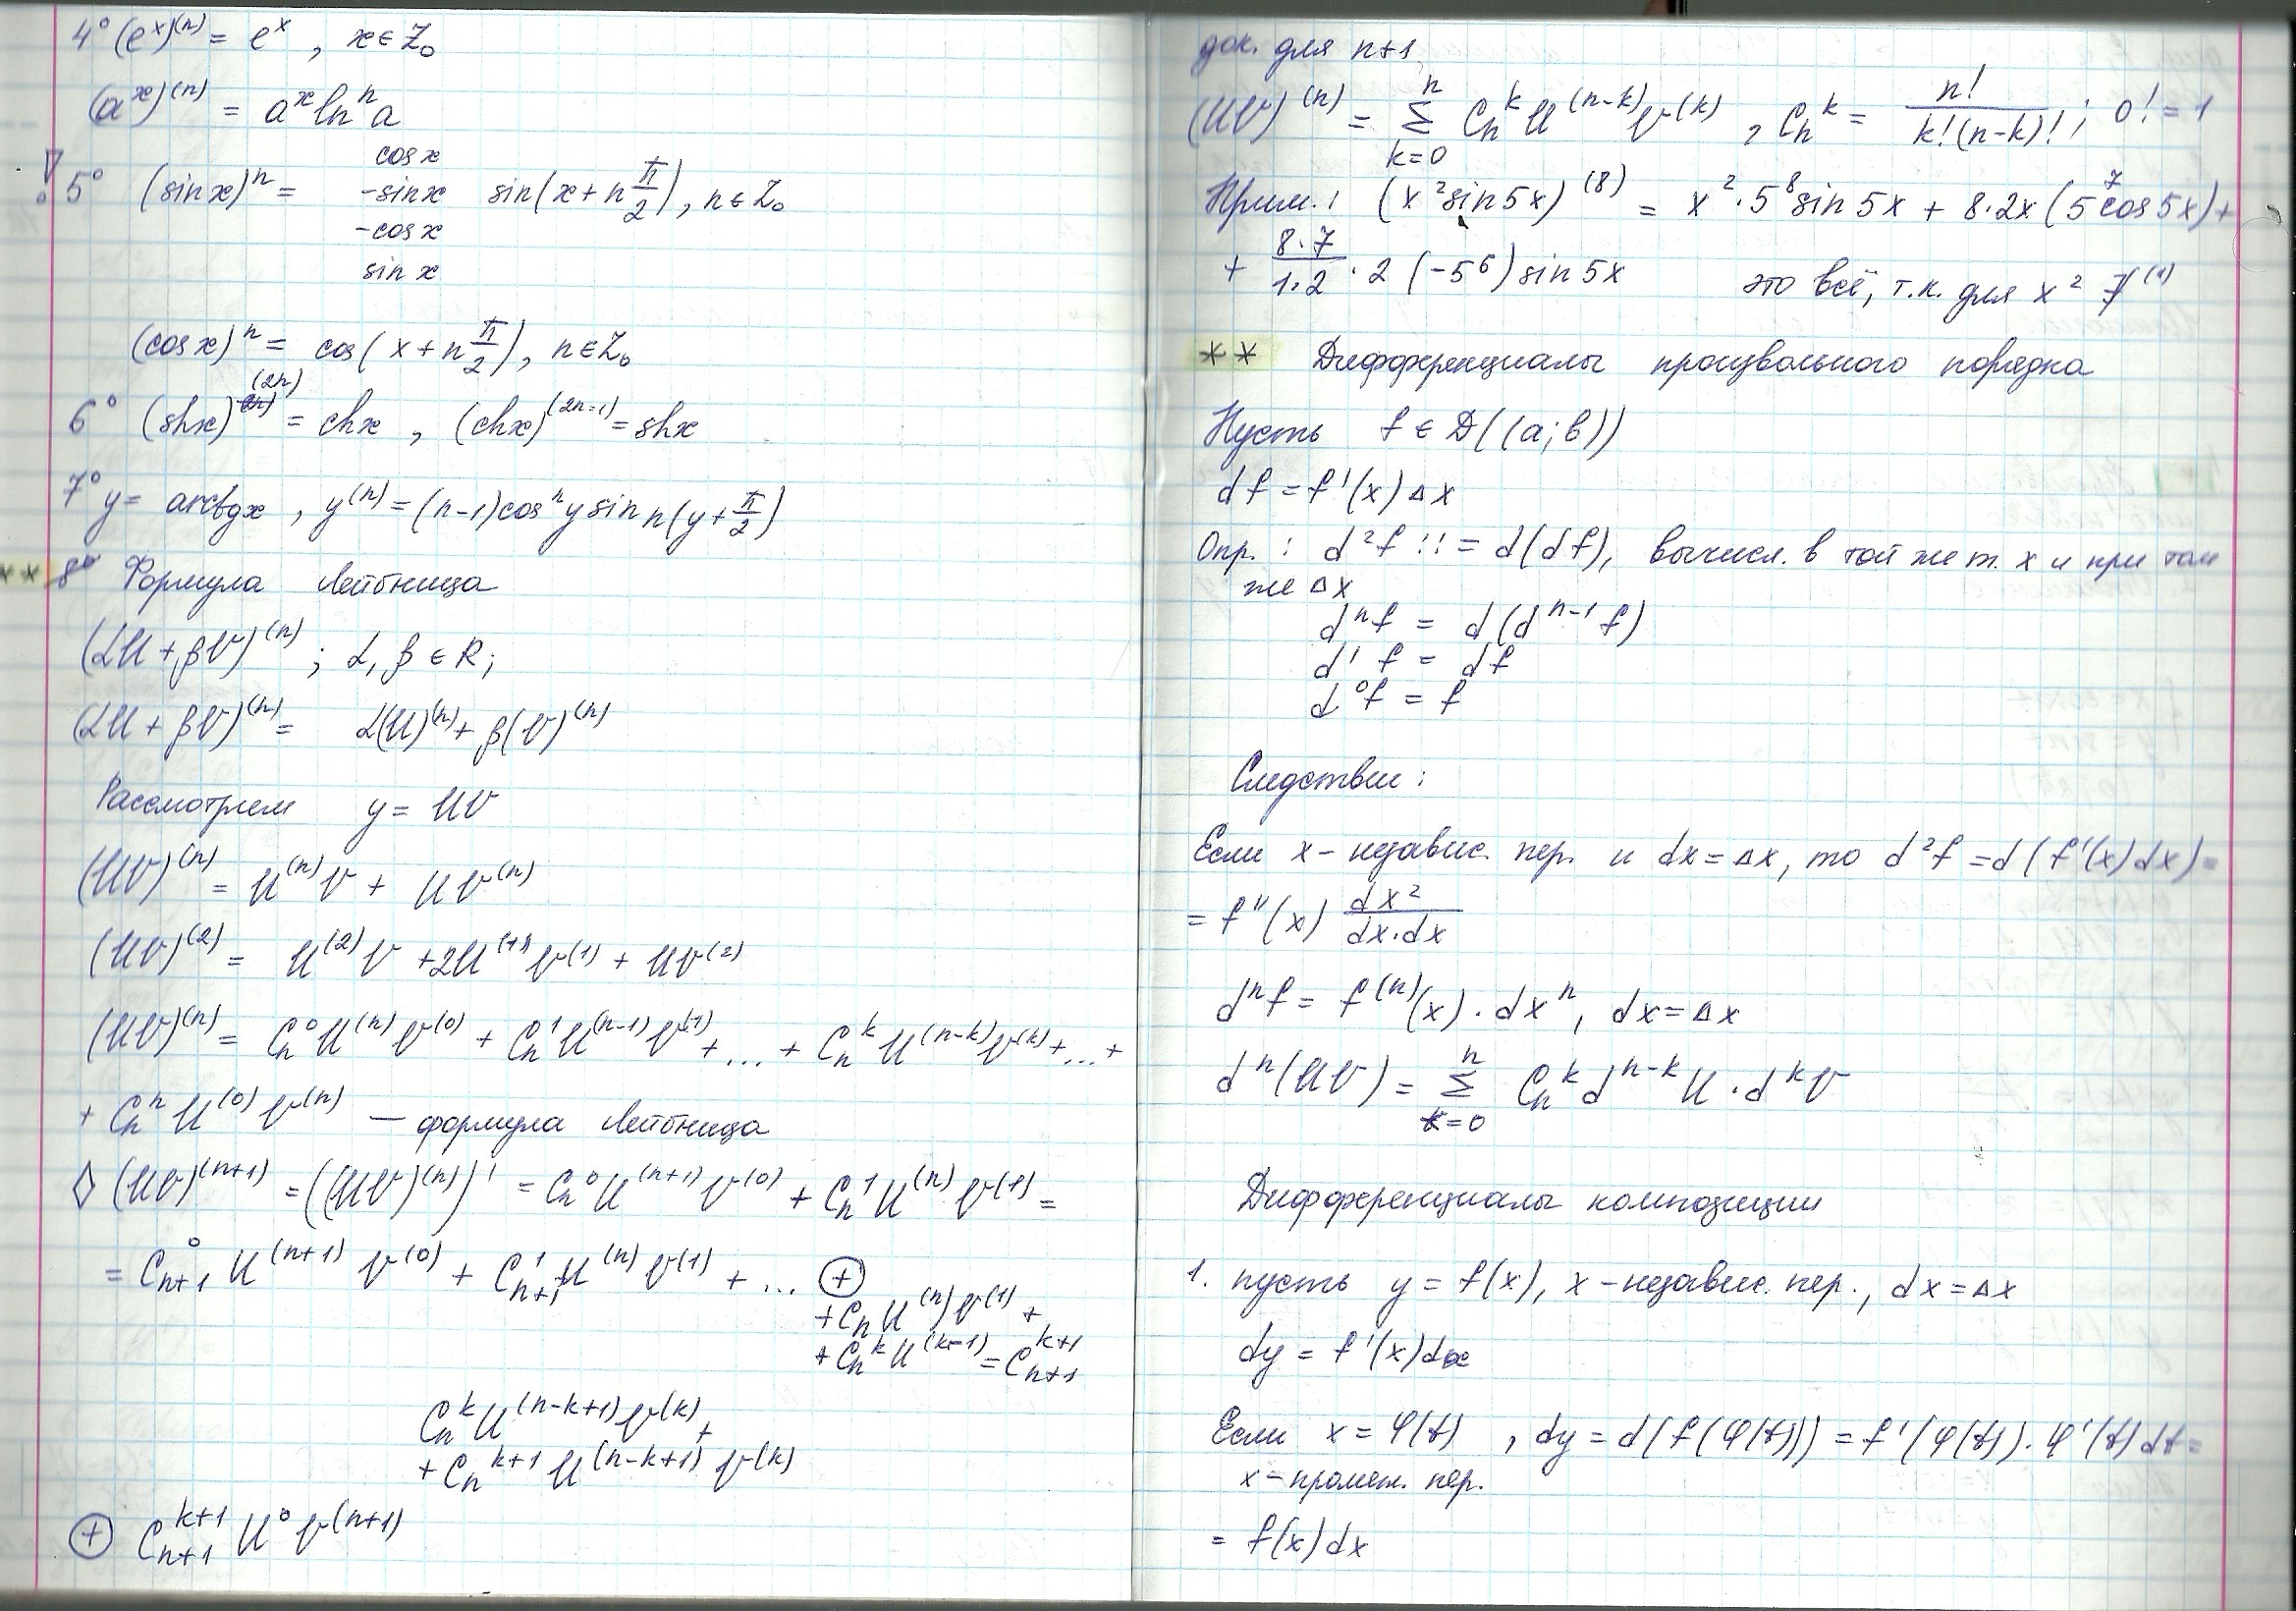 4° (e^x)^(n) = e^x , x∈Z₀
(a^x)^(n) = a^x ln^n a
cos x
! 5° (sin x)^n = -sin x sin(x + n π/2), n∈Z₀
-cos x
sin x
(cos x)^n = cos(x + n π/2), n∈Z₀
6° (sh x)^(2n) = ch x , (ch x)^(2n-1) = sh x
7° y = arctg x , y^(n) = (n-1) cos^n y sin n(y + π/2)
** 8° Формула Лейбница
(αU + βV)^(n) ; α, β ∈ R;
(αU + βV)^(n) = α(U)^(n) + β(V)^(n)
Рассмотрим y = UV
(UV)^(n) = U^(n)V + UV^(n)
(UV)^(2) = U^(2)V + 2U^(1)V^(1) + UV^(2)
(UV)^(n) = C_n^0 U^(n) V^(0) + C_n^1 U^(n-1) V^(1) + ... + C_n^k U^(n-k) V^(k) + ... +
+ C_n^n U^(0) V^(n) — формула Лейбница
◊ (UV)^(n+1) = ((UV)^(n))' = C_n^0 U^(n+1) V^(0) + C_n^1 U^(n) V^(1) =
= C_{n+1}^0 U^(n+1) V^(0) + C_{n+1}^1 U^(n) V^(1) + ... ⊕
+ C_n U^(n) V^(1) +
+ C_n^k U^(k-1) = C_{n+1}^{k+1}
C_n^k U^(n-k+1) V^(k) +
+ C_n^{k+1} U^(n-k+1) V^(k)
⊕ C_{n+1}^{k+1} U^0 V^(n+1)
док. для n+1
(UV)^(n) = Σ_{k=0}^{n} C_n^k U^(n-k) V^(k) , C_n^k = n!/(k!(n-k)!) ; 0! = 1
Прим.: (x² sin 5x)^(8) = x²·5^8 sin 5x + 8·2x (5^7 cos 5x) +
+ 8·7/1·2 · 2 (-5^6) sin 5x это всё, т.к. для x²
** Дифференциалы произвольного порядка
Пусть f ∈ D((a;b))
df = f'(x) Δx
Опр.: d²f ::= d(df), вычисл. в той же т. x и при том
же Δx
d^n f = d(d^{n-1} f)
d¹f = df
d⁰f = f
Следствие:
Если x - независ. пер. и dx = Δx, то d²f = d(f'(x)dx) =
= f''(x) dx²/dx·dx
d^n f = f^(n)(x)·dx^n, dx = Δx
d^n(UV) = Σ_{k=0}^{n} C_n^k d^{n-k}U·d^kV
Дифференциалы композиции
1. пусть y = f(x), x - независ. пер., dx = Δx
dy = f'(x)dx
Если x = φ(t) , dy = d(f(φ(t))) = f'(φ(t))·φ'(t)dt =
x - промеж. пер.
= f(x)dx